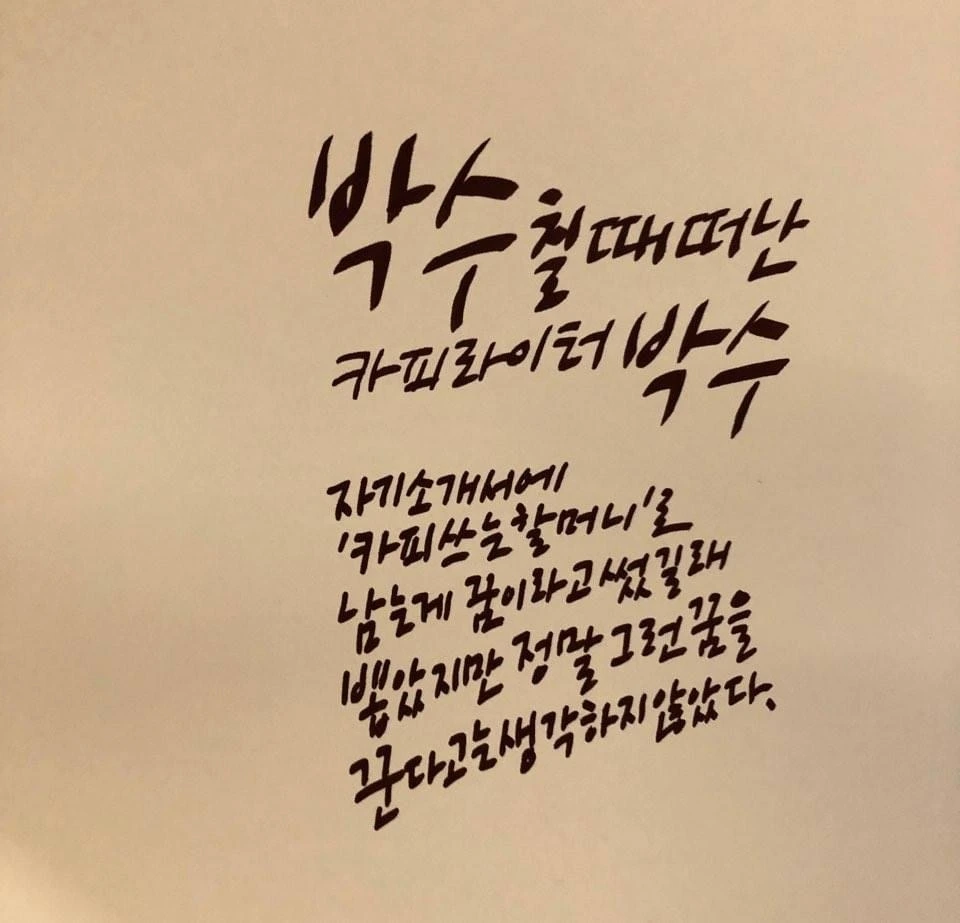 박수칠때떠난
카피라이터 박수
자기소개서에
'카피쓰는할머니'로
남는게 꿈이라고썼길래
뽑았지만 정말 그런꿈을
꾼다고는생각하지않았다.